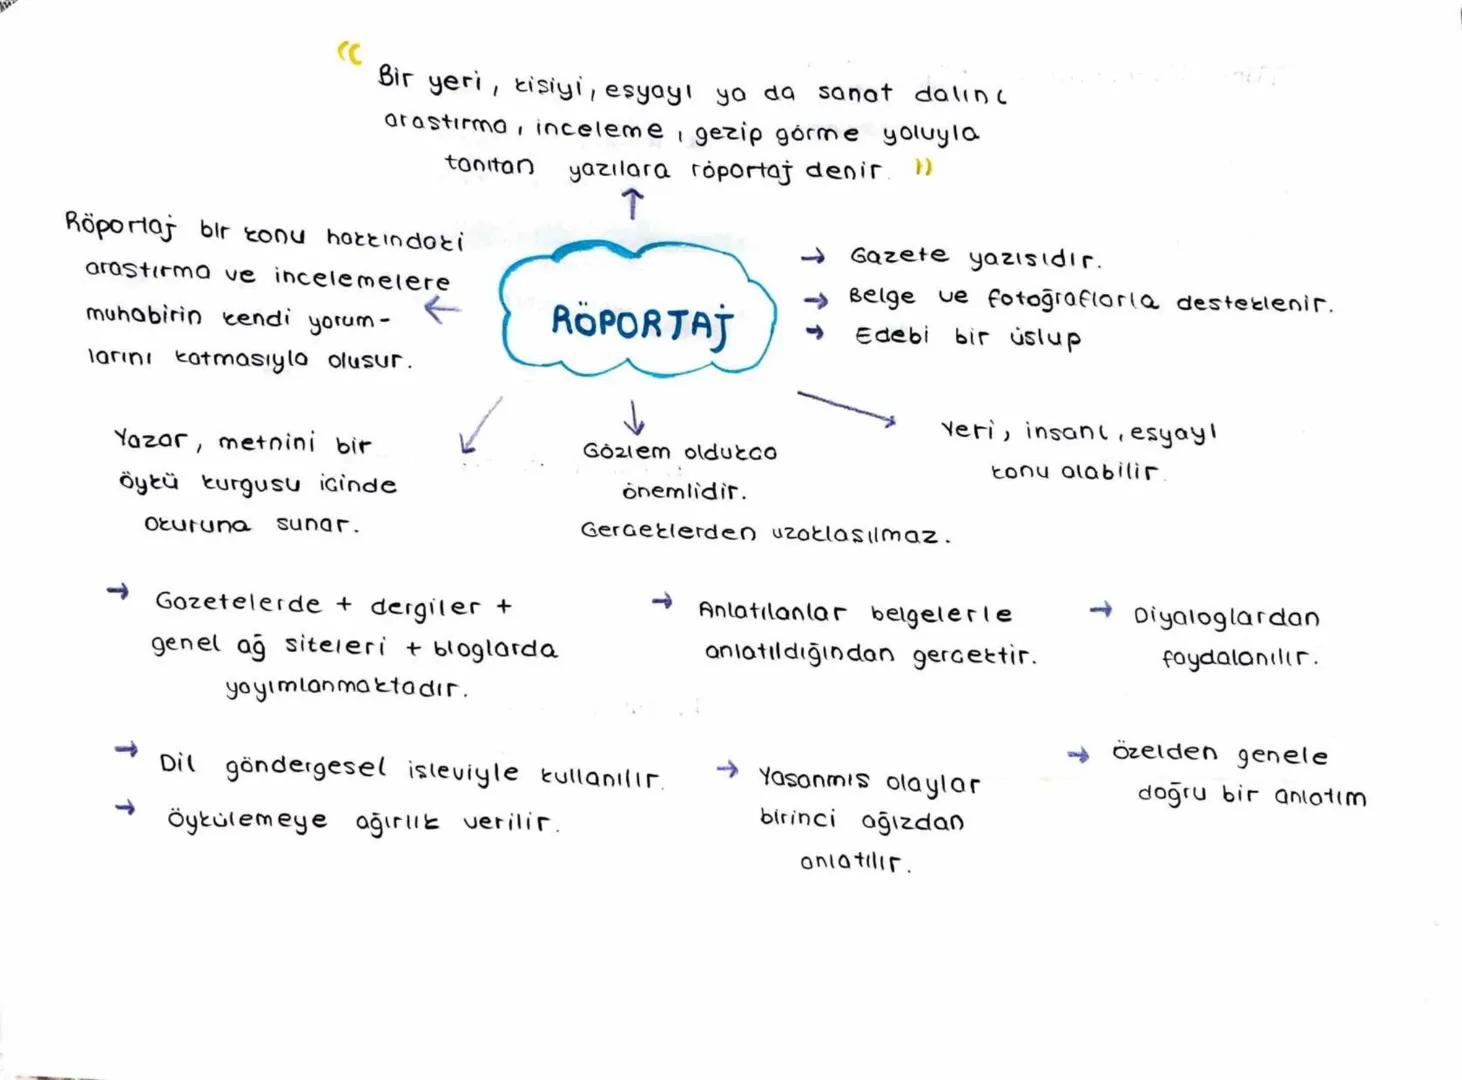 Bir yeri, kişiyi, eşyayı ya da sanat dalını
araştırma, inceleme, gezip görme yoluyla
tanıtan yazılara röportaj denir.
Röportaj bir konu hakkındaki
araştırma ve incelemelere
muhabirin kendi yorum-
larını katmasıyla oluşur.
RÖPORTAJ
→ Gazete yazısıdır.
→ Belge ve fotoğraflarla desteklenir.
→ Edebi bir üslup
Yazar, metnini bir
öykü kurgusu içinde
okuruna sunar.
Gözlem oldukça
önemlidir.
Gerçeklerden uzaklaşılmaz.
Yeri, insanı, eşyayı
konu alabilir.
→ Gazetelerde + dergiler +
genel ağ siteleri + bloglarda
yayımlanmaktadır.
→ Anlatılanlar belgelerle
anlatıldığından gerçektir.
→ Diyaloglardan
faydalanılır.
→ Dil göndergesel işleviyle kullanılır.
→ Öykülemeye ağırlık verilir.
→ Yaşanmış olaylar
birinci ağızdan
anlatılır.
→ Özelden genele
doğru bir anlatım